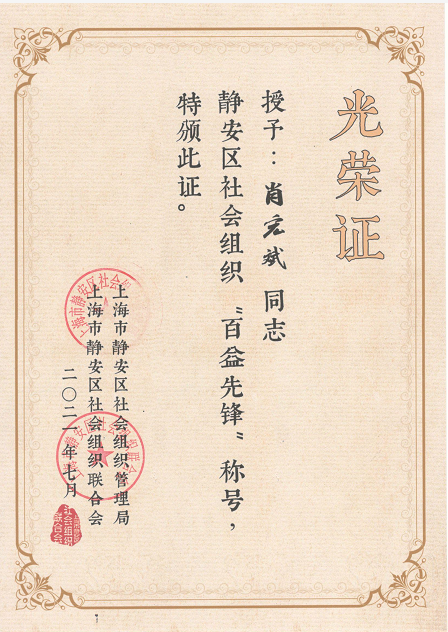 光荣证
授予：肖宏斌 同志
静安区社会组织“百益先锋”称号，
特颁此证。
上海市静安区社会组织管理局
上海市静安区社会组织联合会
二〇二一年七月
社会组织
联合会